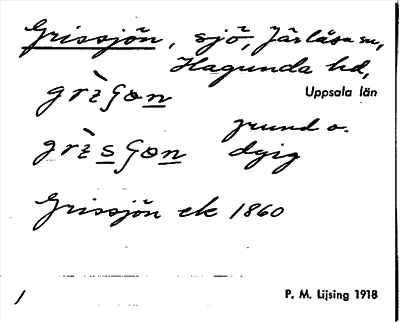 Grissjön, sjö, Järlåsa sn,
Hagunda hd,
Uppsala län
grund o.
dyig
Grissjön ek 1860
1
P. M. Lijsing 1918